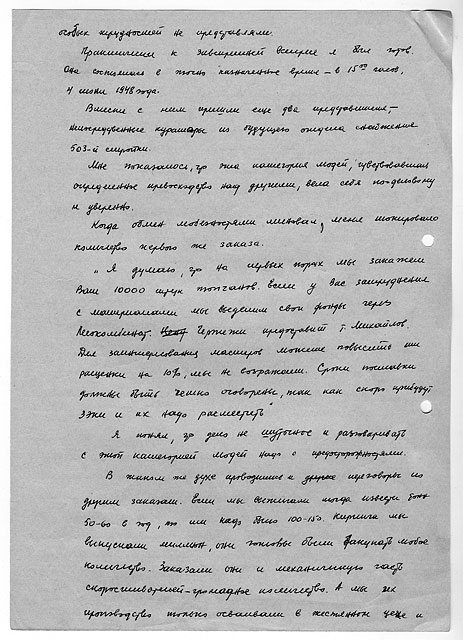 особых трудностей не представляли.
Практически к завтрашней встрече я был готов.
Она состоялась в точно назначенное время – в 15⁰⁰ часов,
4 июня 1948 года.
Вместе с ним пришли еще два представителя, –
непосредственные кураторы из будущего отдела снабжения
503-й стройки.
Мне показалось, что эта категория людей, чувствовавшая
определенное превосходство над другими, вела себя по-деловому
и уверенно.
Когда обмен любезностями миновал, меня шокировало
количество первого же заказа.
„Я думаю, что на первых порах мы закажем
Вам 10000 штук топчанов. Если у Вас затруднения
с материалами мы выделим свои фонды через
Лесокомбинат. Чертежи предоставит т. Михайлов.
Для заинтересования мастеров можете повысить им
расценки на 10%, мы не возражаем. Сроки поставки
должны быть четко оговорены, так как скоро прибудут
зэки и их надо разместить"
Я понял, что дело не шуточное и разговаривать
с этой категорией людей надо с предосторожностями.
В таком же духе проводились и другие переговоры по
другим заказам. Если мы достигали когда извести тонн
50-60 в год, то им надо было 100-150. Кирпича мы
выпускали миллион, они готовы были закупать любое
количество. Заказали они и механическую часть
скоросшивателей – громадное количество. А мы их
производство только осваивали в жестяном цехе и